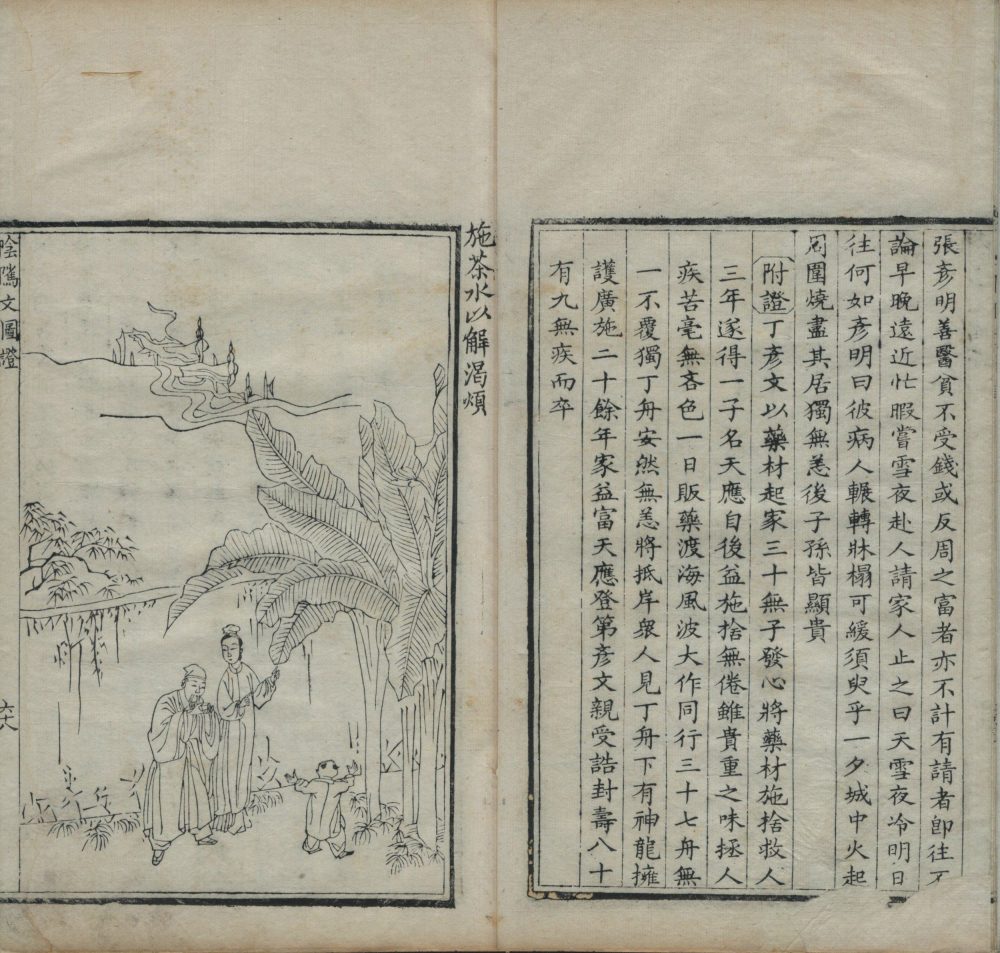 張彥明善醫貧不受錢或反周之富者亦不計有請者卽往不
論早晚遠近忙暇嘗雪夜赴人請家人止之曰天雪夜冷明日
往何如彥明曰彼病人輾轉牀榻可緩須臾乎一夕城中火起
周圍燒盡其居獨無恙後子孫皆顯貴
附證丁彥文以藥材起家三十無子發心將藥材施捨救人
三年遂得一子名天應自後益施捨無倦雖貴重之味拯人
疾苦毫無吝色一日販藥渡海風波大作同行三十七舟無
一不覆獨丁舟安然無恙將抵岸衆人見丁舟下有神龍擁
護廣施二十餘年家益富天應登第彥文親受誥封壽八十
有九無疾而卒
施茶水以解渴煩
陰隲文圖證
六十八